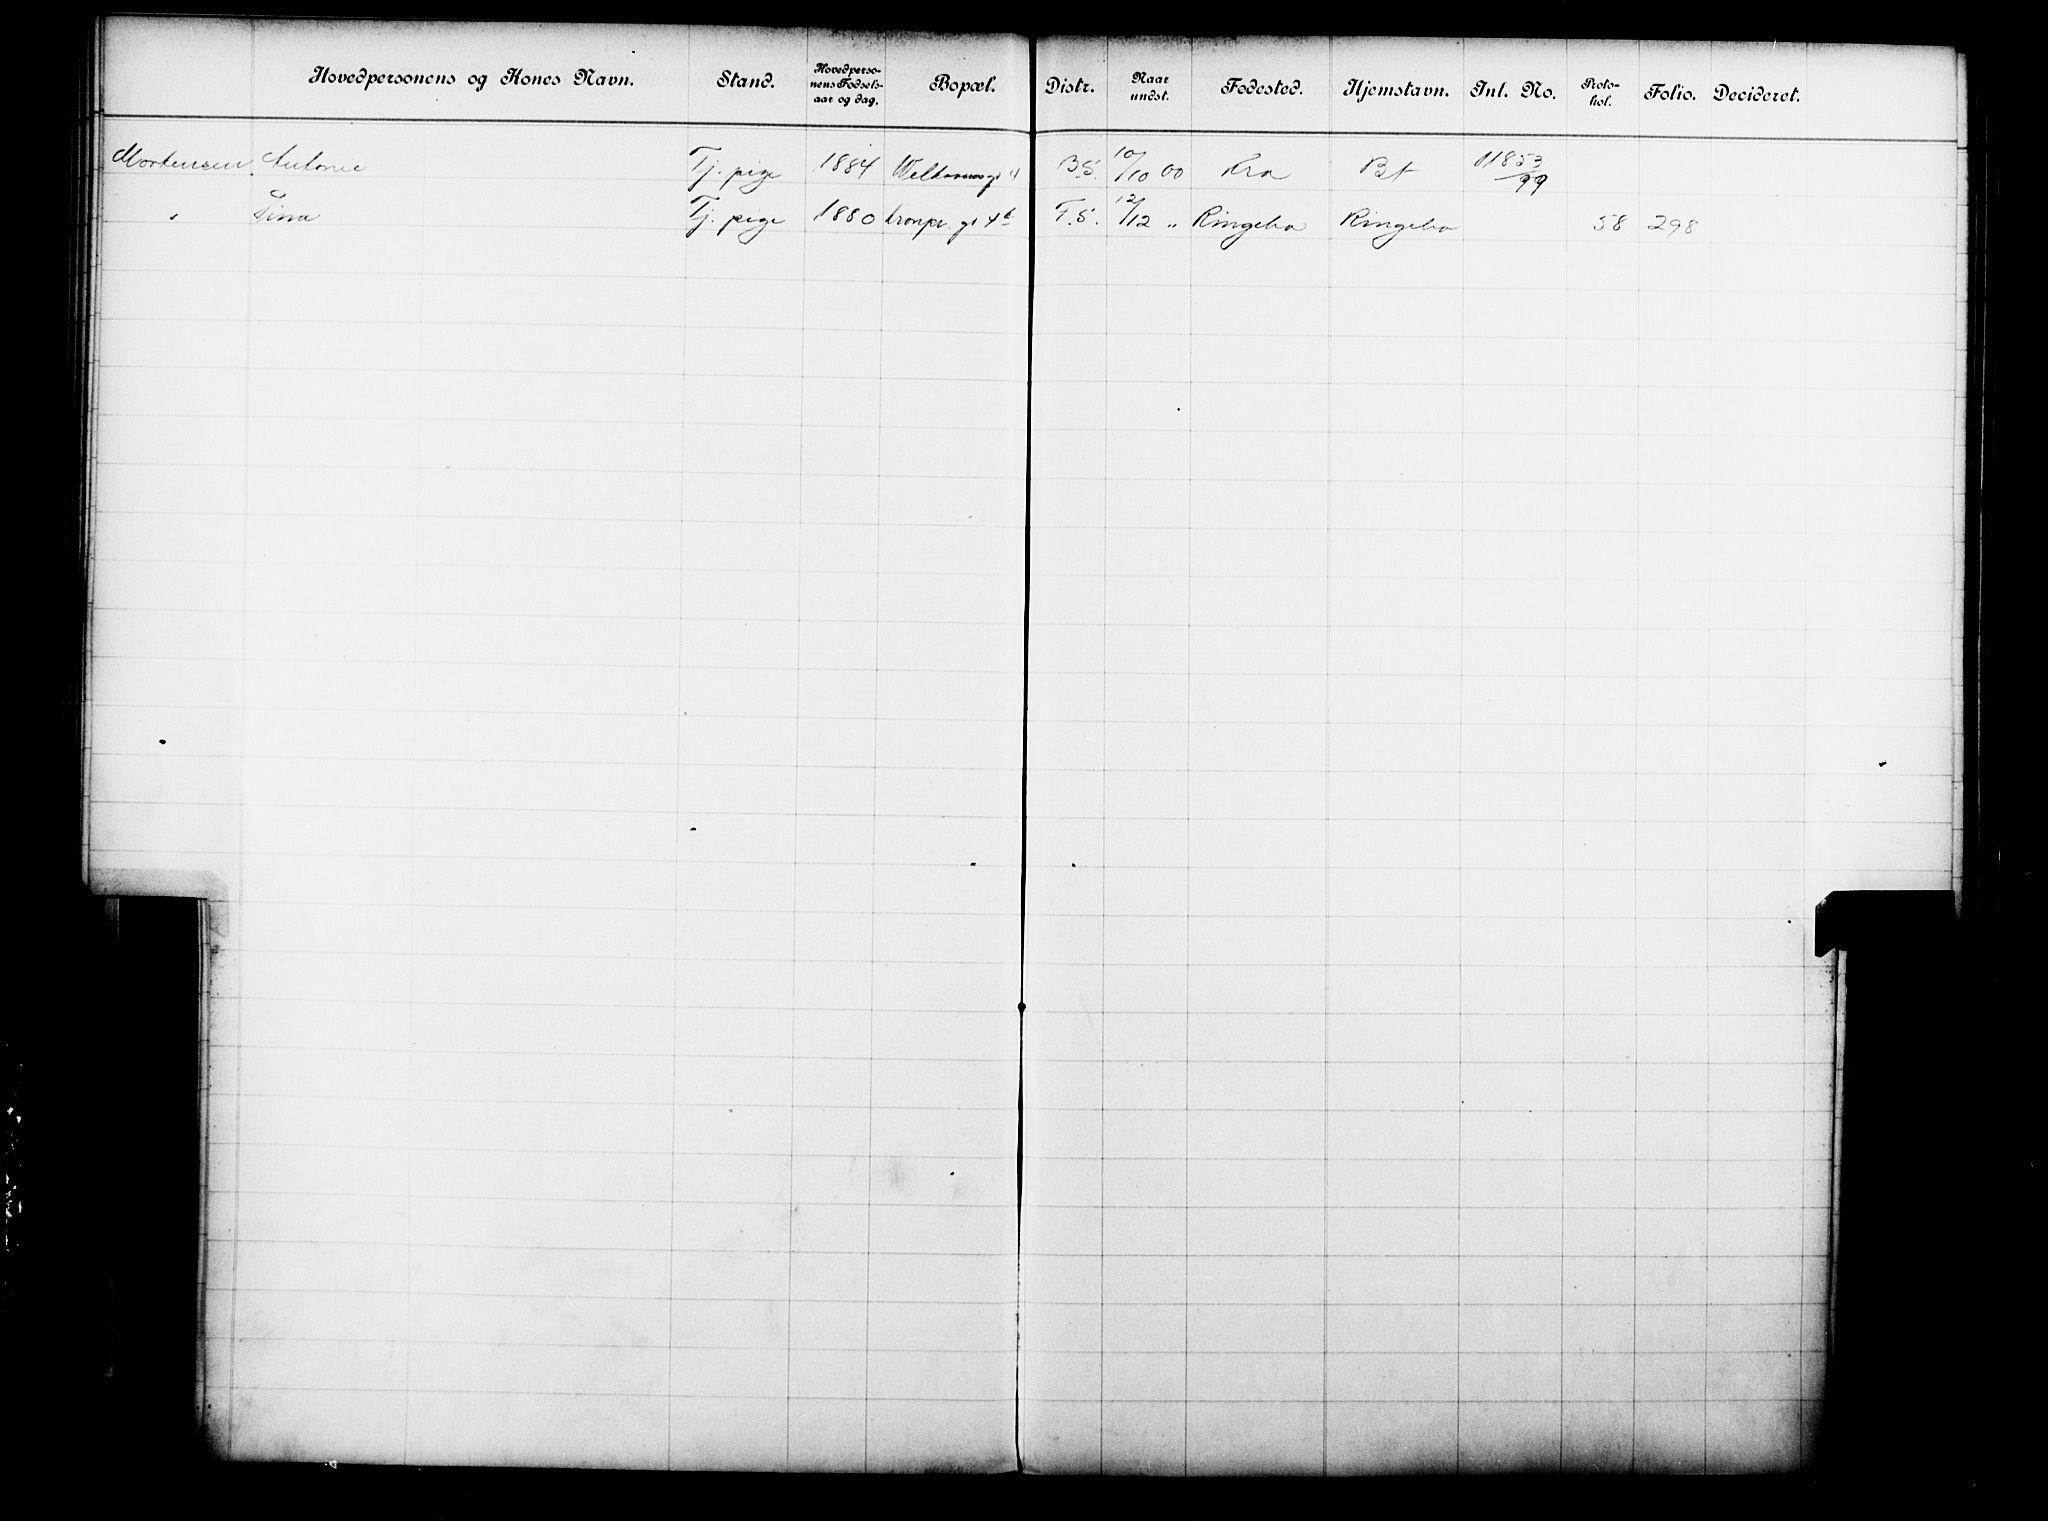 Hovedpersonens og Kones Navn. Stand. Hovedpersonens Fødselsaar og dag. Bopæl. Distr. Naar undst. Fødested. Hjemstavn. Inl. No. Protokol. Folio. Decideret.
Mortensen Antonie Tj. pige 1884 B.S. 10/10 00 Kra Bt 11853/99
" Tina Tj. pige 1880 Kronpr. gt 4b F.S. 12/12 " Ringebo Ringebo 58 298